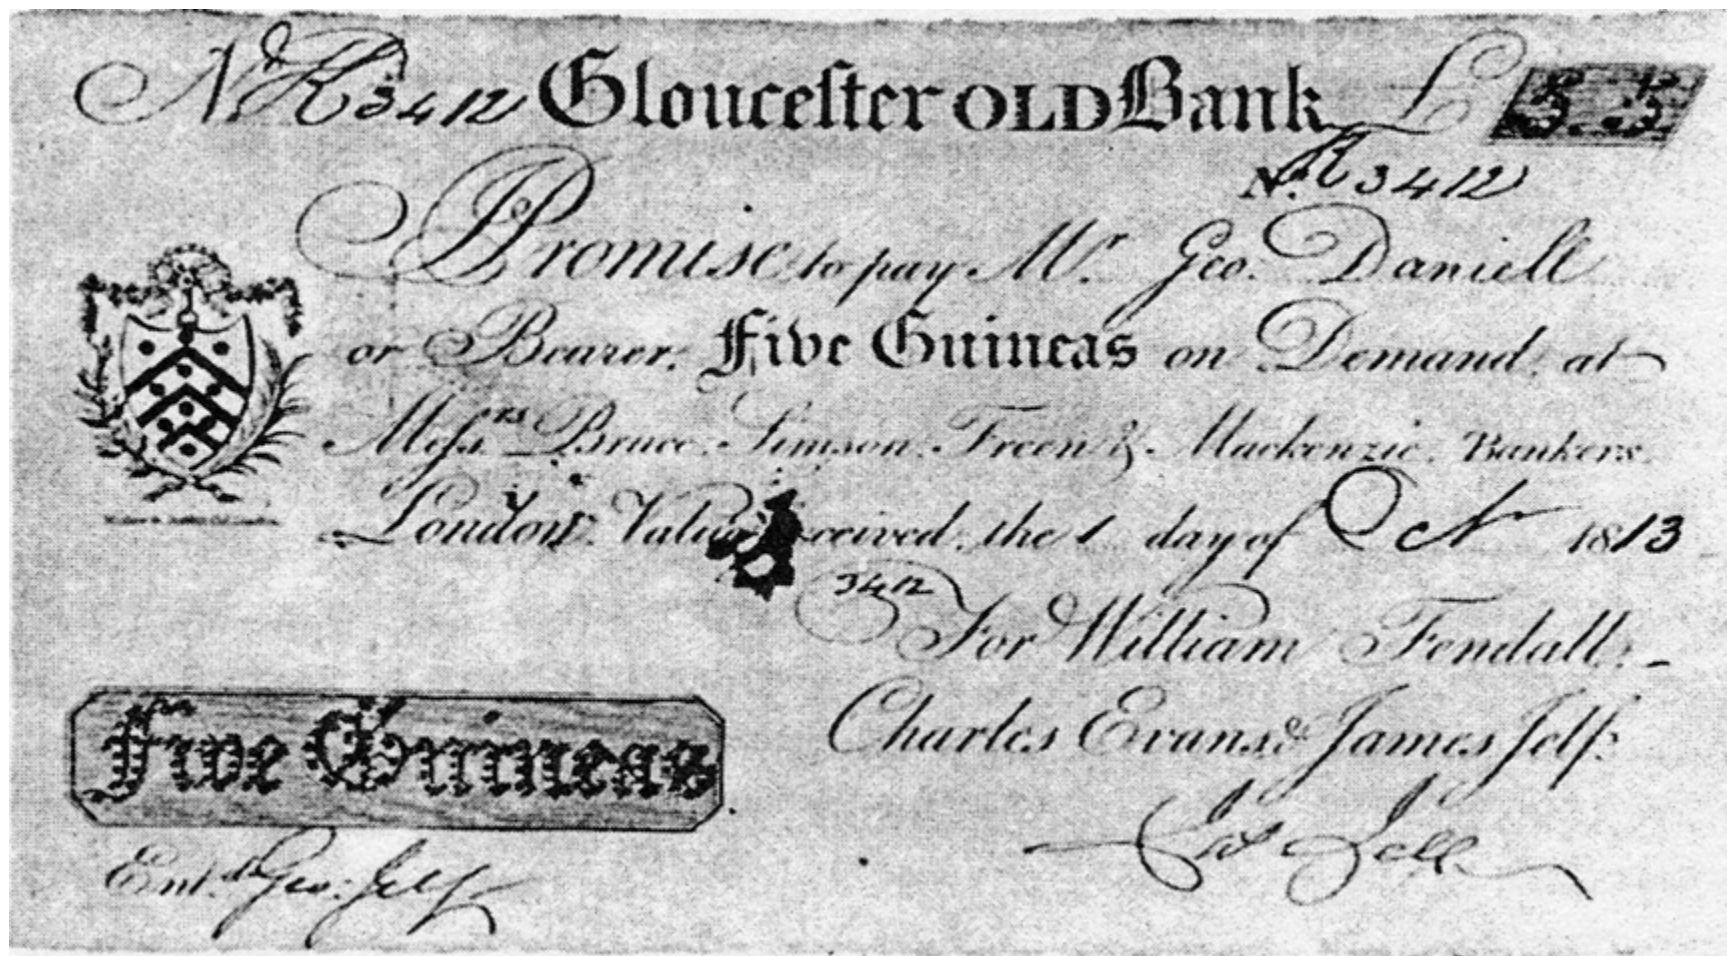 No R 3412 Glouceſter OLD Bank £ 5.5
No. R 3412
I Promise to pay Mr. Geo. Daniell
or Bearer, Five Guineas on Demand, at
Meſsrs Bruce, Simson, Freer & Mackenzie, Bankers
London, Value received, the 1 day of Oct 1813
3412
For William Fendall,
Charles Evans & James Jelf.
Five Guineas
Entd. Geo: Jelf
Jelf